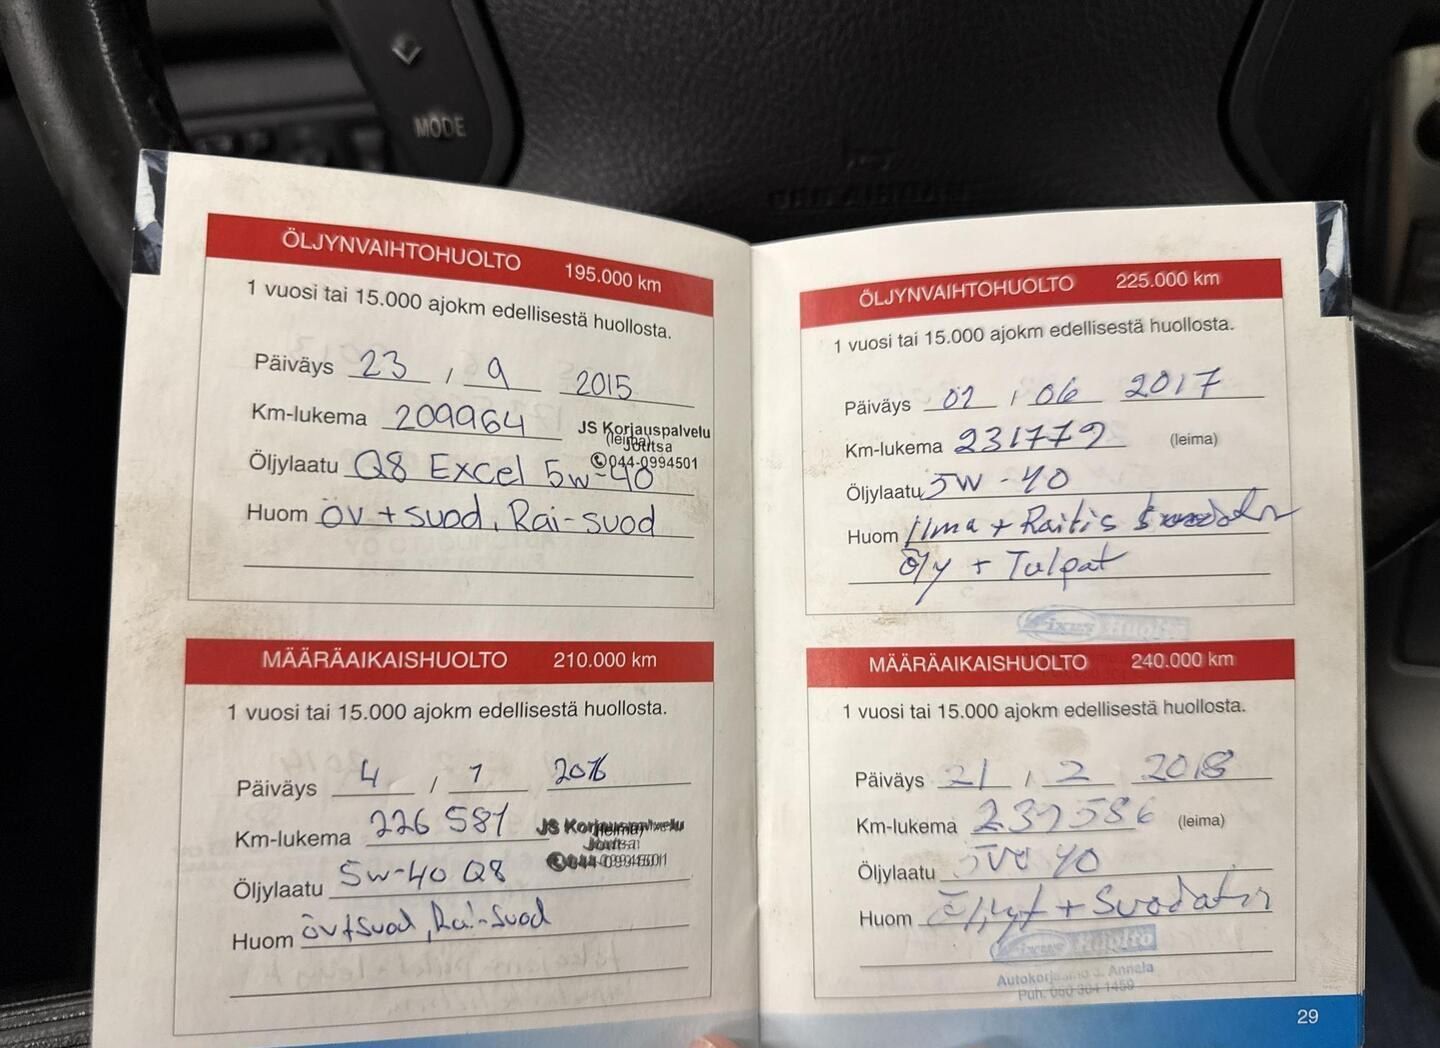 MODE
ÖLJYNVAIHTOHUOLTO 195.000 km
1 vuosi tai 15.000 ajokm edellisestä huollosta.
Päiväys 23 / 9 2015
Km-lukema 209964
JS Korjauspalvelu
(leima)
Joutsa
044-0994501
Öljylaatu Q8 Excel 5w-40
Huom öv + suod, Rai-suod
MÄÄRÄAIKAISHUOLTO 210.000 km
1 vuosi tai 15.000 ajokm edellisestä huollosta.
Päiväys 4 / 7 2016
Km-lukema 226 581
JS Korjauspalvelu
(leima)
Öljylaatu 5w-40 Q8
Huom öv+suod, Rai-suod
ÖLJYNVAIHTOHUOLTO 225.000 km
1 vuosi tai 15.000 ajokm edellisestä huollosta.
Päiväys 01 / 06 2017
Km-lukema 231779 (leima)
Öljylaatu 5W-40
Huom Ilma + Raitis
Öljy + Tulpat
Fixus Huolto
MÄÄRÄAIKAISHUOLTO 240.000 km
1 vuosi tai 15.000 ajokm edellisestä huollosta.
Päiväys 21 / 2 2018
Km-lukema (leima)
Öljylaatu 5W 40
Huom Öljyt + Suodatin
Fixus Huolto
Autokorjaamo J. Annala
Puh.
29